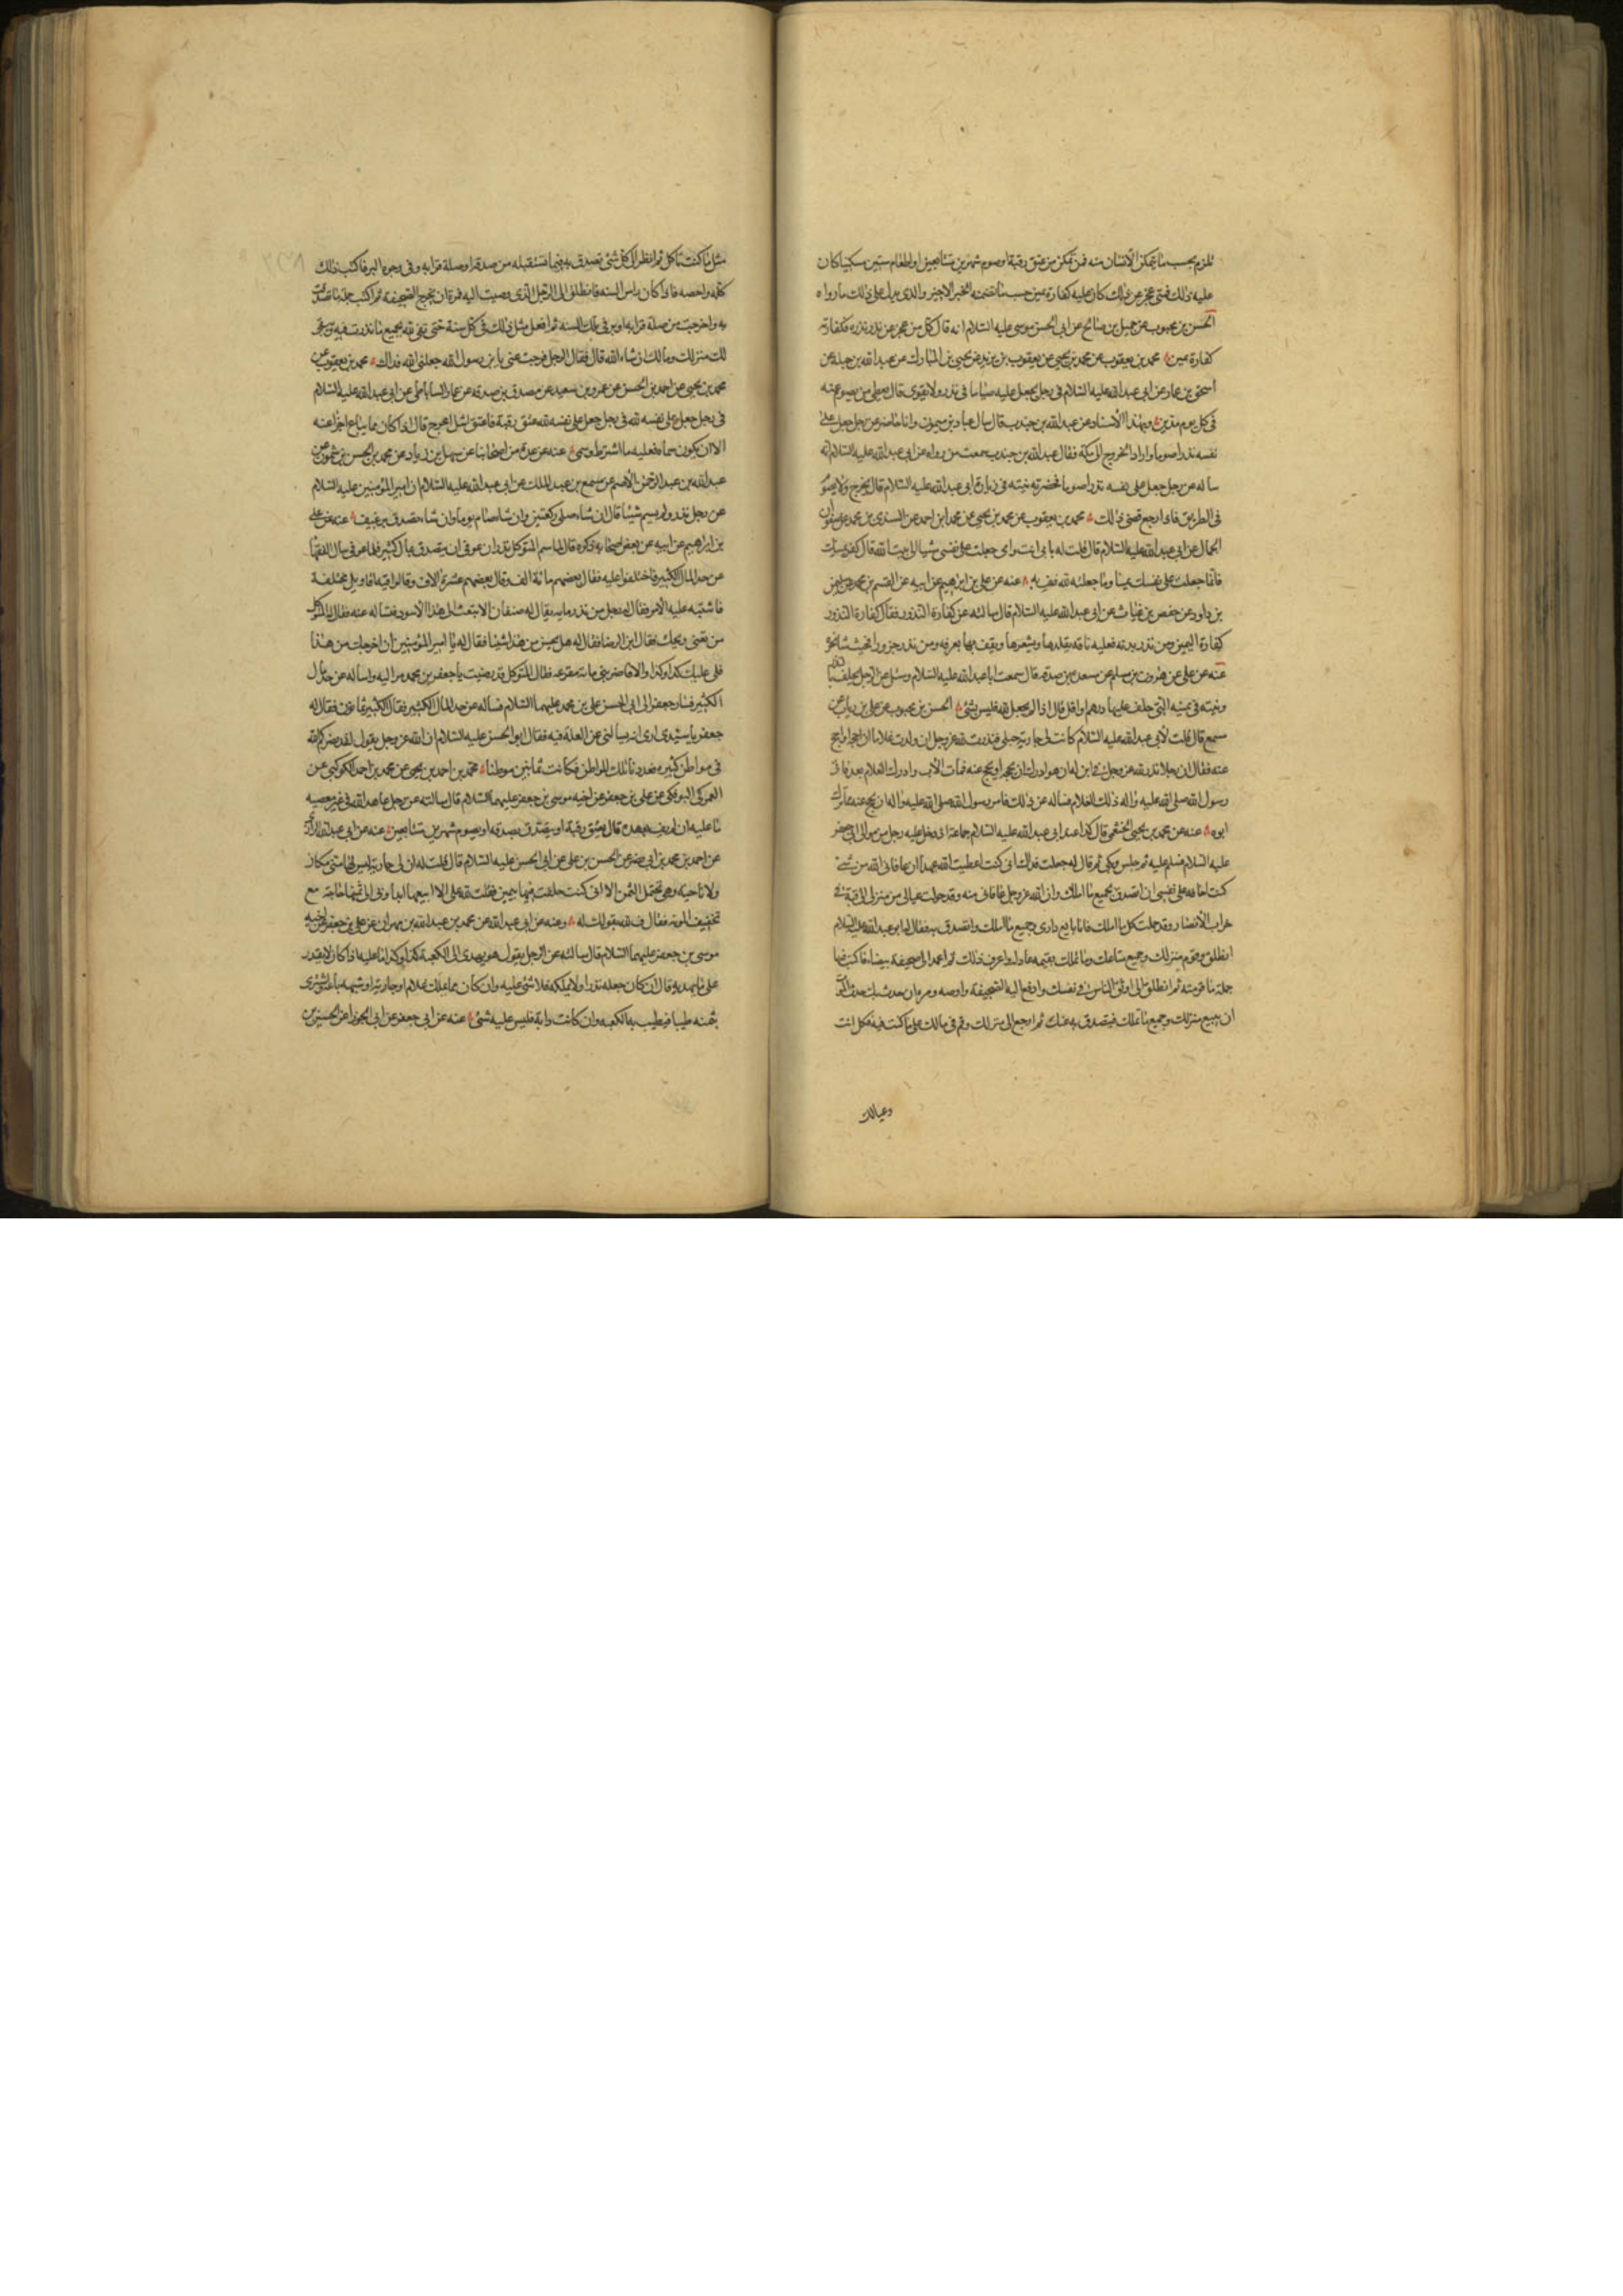 تلزم بحسب ما يتمكن الانسان منه فمن تمكن من عتق رقبة او صوم شهرين متتابعين او اطعام ستين مسكينا كان
عليه ذلك فمتى عجز عن ذلك كان عليه كفارة يمين حسب ما تضمنه الخبر الاخير والذى يدل على ذلك ما رواه
الحسن بن محبوب عن جميل بن صالح عن ابى الحسن موسى عليه السلام انه قال كل من عجز عن نذر نذره فكفارته
كفارة يمين محمد بن يعقوب عن محمد بن يحيى عن يعقوب بن يزيد عن يحيى بن المبارك عن عبد الله بن جبلة عن
اسحق بن عمار عن ابى عبد الله عليه السلام فى رجل يجعل عليه صياما فى نذر ولا يقوى قال يعطى من يصوم عنه
فى كل يوم مدين وبهذا الاسناد عن عبد الله بن جندب قال سال عباد بن ميمون وانا حاضر عن رجل جعل على
نفسه نذرا صوما واراد الخروج الى مكة فقال عبد الله بن جندب سمعت من رواه عن ابى عبد الله عليه السلام انه
ساله عن رجل جعل على نفسه نذرا صوما فحضرته نيته فى زيارة ابى عبد الله عليه السلام قال يخرج ولا يصوم
فى الطريق فاذا رجع قضى ذلك محمد بن يعقوب عن محمد بن يحيى عن محمد بن احمد عن السندى بن محمد عن صفوان
الجمال عن ابى عبد الله عليه السلام قال قلت له بابى انت وامى جعلت على نفسى مشيا الى بيت الله قال كفر يمينك
فانما جعلت على نفسك يمينا وما جعلته لله فف به عنه عن على بن ابراهيم عن ابيه عن القسم بن محمد عن سليمن
بن داود عن حفص بن غياث عن ابى عبد الله عليه السلام قال سالته عن كفارة النذور فقال كفارة النذور
كفارة اليمين ومن نذر بدنة فعليه ناقة يقلدها ويشعرها ويقف بها بعرفه ومن نذر جزورا فحيث شاء نحره
عنه عن على عن هرون بن مسلم عن مسعدة بن صدقة قال سمعت ابا عبد الله عليه السلام وسئل عن الرجل يحلف بالنذر
ونيته فى يمينه التى حلف عليها درهم او اقل قال اذا لم يجعل لله فليس بشئ الحسن بن محبوب عن على بن رياب عن
مسمع قال قلت لابى عبد الله عليه السلام كانت لى جارية حبلى فنذرت لله عز وجل ان ولدت غلاما ان احجه او احج
عنه فقال ان رجلا نذر لله عز وجل فى ابن له ان هو ادرك ان يحجه او يحج عنه فمات الاب وادرك الغلام بعد فاتى
رسول الله صلى الله عليه واله ذلك الغلام فساله عن ذلك فامر رسول الله صلى الله عليه واله ان يحج عنه مما ترك
ابوه عنه عن محمد بن يحيى الخثعمى قال كنا عند ابى عبد الله عليه السلام جماعة اذ دخل عليه رجل من موالى ابى جعفر
عليه السلام فسلم عليه ثم جلس وبكى ثم قال له جعلت فداك انى كنت اعطيت الله عهدا ان عافانى الله من شئ
كنت اخافه على نفسى ان اتصدق بجميع ما املك وان الله عز وجل عافانى منه وقد حولت عيالى من منزلى الى قبة فى
خراب الانصار وقد حملت كل ما املك فانا بايع دارى وجميع ما املك واتصدق به فقال له ابو عبد الله عليه السلام
انطلق وقوم منزلك وجميع متاعك وما تملك بقيمة عادلة واعرف ذلك ثم اعمد الى صحيفة بيضاء فاكتب فيها
جملة ما قومته ثم انطلق الى اوثق الناس فى نفسك وادفع اليه الصحيفة واوصه ومره ان حدث بك حدث الموت
ان يبيع منزلك وجميع ما تملك فيتصدق به عنك ثم ارجع الى منزلك وقم فى مالك على ما كنت فيه فكل انت
وعيالك
مثل ما كنت تاكل ثم انظر الى كل شئ تصدق به فيما تستقبله من صدقة او صلة قرابه وفى وجوه البر فاكتب ذلك
كله واحصه فاذا كان راس السنه فانطلق الى الرجل الذى وصيت اليه فمره ان يخرج الصحيفة ثم اكتب جملة ما تصدقت
به واخرجت من صلة قرابه او بر فى تلك السنه ثم افعل مثل ذلك فى كل سنة حتى تفى لله بجميع ما نذرت فيه ويبقى
لك منزلك ومالك ان شاء الله قال فقال الرجل فرجت عنى يا بن رسول الله جعلنى الله فداك محمد بن يعقوب عن
محمد بن يحيى عن احمد بن الحسن عن عمرو بن سعيد عن مصدق بن صدقه عن عمار الساباطى عن ابى عبد الله عليه السلام
فى رجل جعل على نفسه لله فى رجل جعل على نفسه لله عتق رقبة فاعتق اشل اعرج قال اذا كان مما يباع اجزا عنه
الا ان يكون سماه فعليه ما اشترط وسمى عنه عن عدة من اصحابنا عن سهل بن زياد عن محمد بن الحسن بن شمون عن
عبد الله بن عبد الرحمن الاصم عن مسمع بن عبد الملك عن ابى عبد الله عليه السلام ان امير المؤمنين عليه السلام
عن رجل نذر ولم يسم شيئا قال ان شاء صلى ركعتين وان شاء صام يوما وان شاء تصدق برغيف عنه عن على
بن ابراهيم عن ابيه عن بعض اصحابه ذكره قال لما سم المتوكل نذر ان عوفى ان يتصدق بمال كثير فلما عوفى سال الفقهاء
عن حد المال الكثير فاختلفوا عليه فقال بعضهم مائة الف وقال بعضهم عشرة الاف وقالوا فيه اقاويل مختلفة
فاشتبه عليه الامر فقال له رجل من ندمايه يقال له صفعان الا تبعث الى هذا الاسود فتساله عنه فقال له المتوكل
من تعنى ويحك فقال ابن الرضا فقال له هل يحسن من هذا شيئا فقال له يا امير المؤمنين ان اخرجك من هذا
فلى عليك كذا وكذا والا فاضربنى مائة مقرعه فقال المتوكل قد رضيت يا جعفر بن محمد سر اليه واساله عن حد المال
الكثير فسار جعفر الى ابى الحسن على بن محمد عليهما السلام فساله عن حد المال الكثير فقال الكثير ثمانون فقال له
جعفر يا سيدى ارى انه يسالنى عن العلة فيه فقال ابو الحسن عليه السلام ان الله عز وجل يقول لقد نصركم الله
فى مواطن كثيره فعددنا تلك المواطن فكانت ثمانين موطنا محمد بن احمد بن يحيى عن محمد بن احمد الكوكبى عن
العمركى البوفكى عن على بن جعفر عن اخيه موسى بن جعفر عليهما السلام قال سالته عن رجل عاهد الله فى غير معصيه
ما عليه ان لم يف بعهده قال يعتق رقبة او يتصدق بصدقه او يصوم شهرين متتابعين عنه عن ابى عبد الله الرازى
عن احمد بن محمد بن ابى نصر عن الحسن بن على عن ابى الحسن عليه السلام قال قلت له ان لى جارية ليس لها منى مكان
ولا ناحية وهى تحتمل الثمن الا انى كنت حلفت فيها بيمين فقلت لله على الا ابيعها ابدا وبى الى ثمنها حاجة مع
تخفيف المونه فقال ف لله بقولك له وعنه عن ابى عبد الله عن محمد بن عبد الله بن مهران عن على بن جعفر عن اخيه
موسى بن جعفر عليهما السلام قال سالته عن الرجل يقول هو يهدى الى الكعبة كذا وكذا ما عليه اذا كان لا يقدر
على ما يهديه قال ان كان جعله نذرا ولا يملكه فلا شئ عليه وان كان مما يملك غلام او جارية او شبهه باعه واشترى
بثمنه طيبا فيطيب به الكعبه وان كانت دابة فليس عليه شئ عنه عن ابى جعفر عن ابى الجوزا عن الحسين بن